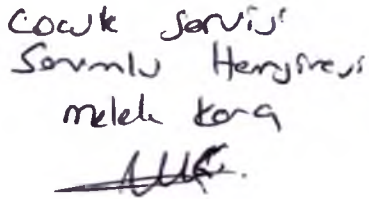 Cocuk Servisi
Sorumlu Hemşiresi
Melek Kora